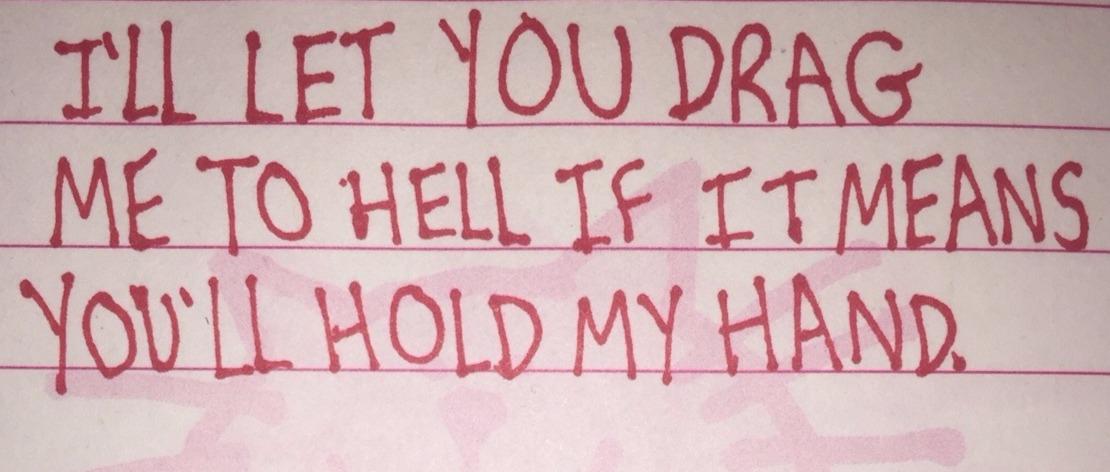 I'LL LET YOU DRAG
ME TO HELL IF IT MEANS
YOU'LL HOLD MY HAND.